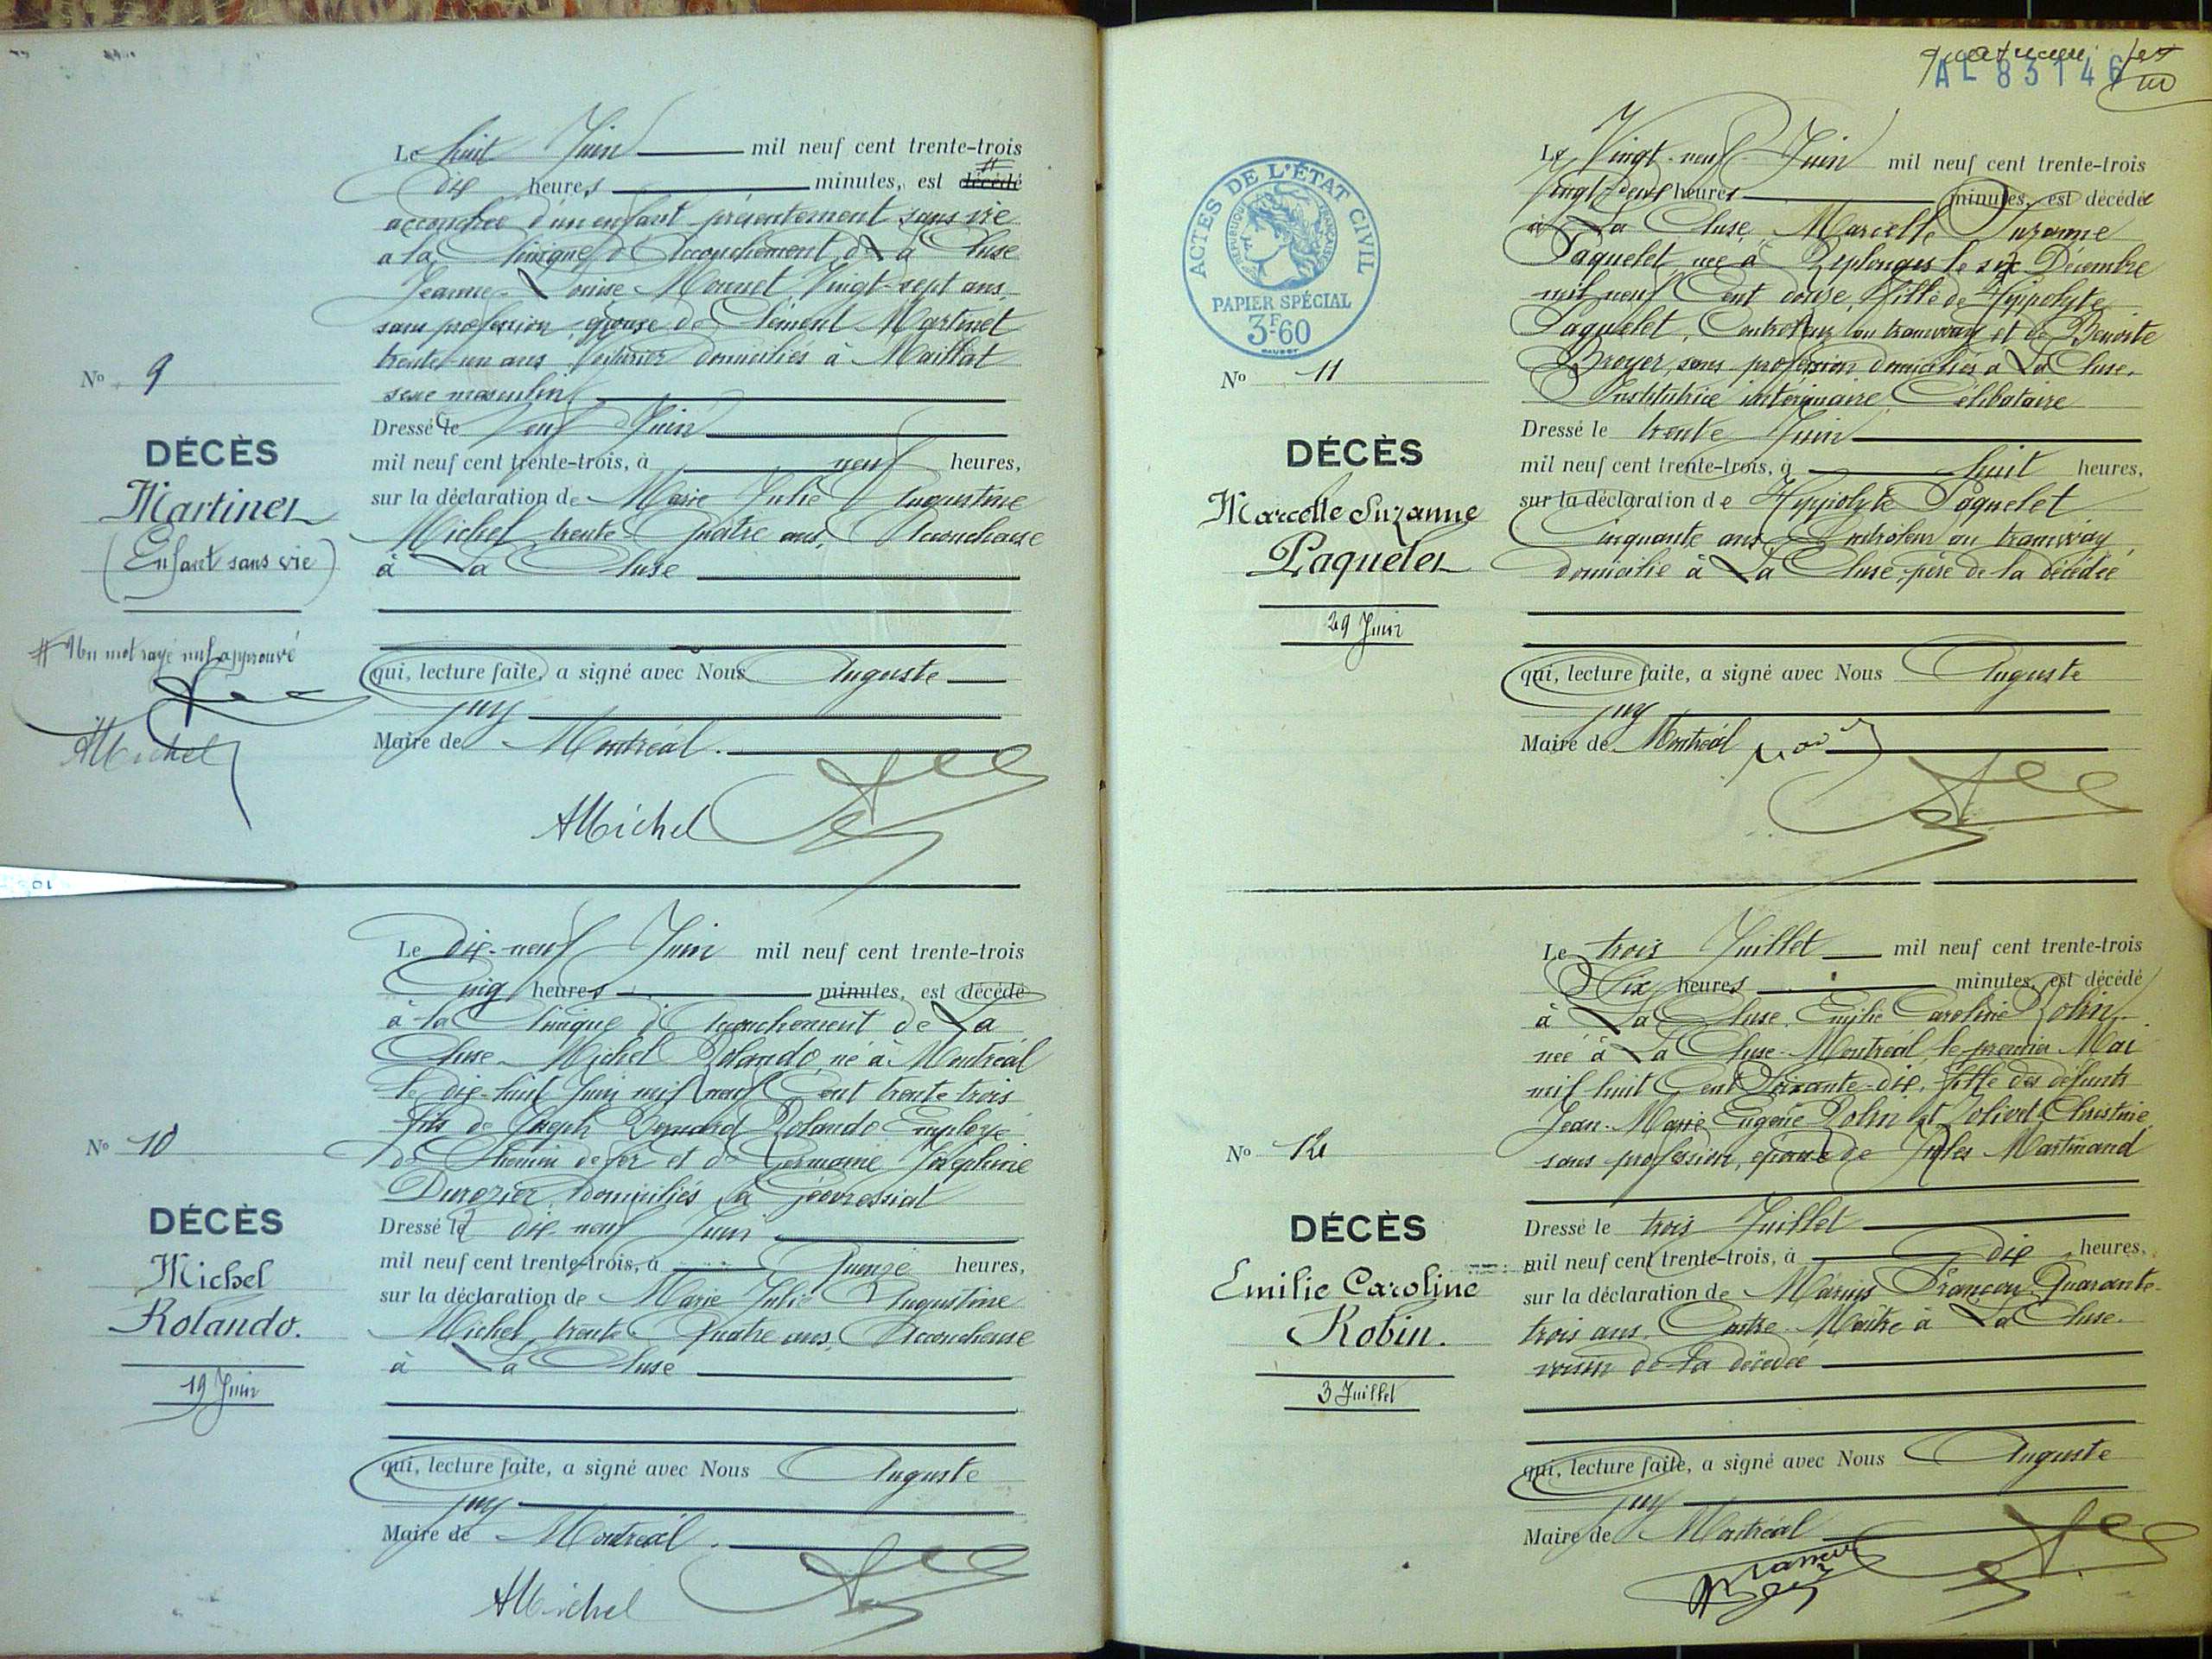 Le huit Juin mil neuf cent trente-trois
dix heures minutes, est décédé #
accouchée d'un enfant présentement sans vie
a la Clinique d'Accouchement de La Cluse
Jeanne-Louise Monnet Vingt-sept ans,
sans profession épouse de Clément Martinet
trente-un ans Voiturier domiciliés à Maillat
sexe masculin
Nº 9
DÉCÈS
Martinet
(Enfant sans vie)
# Un mot rayé nul approuvé
AMichel
Dressé le neuf Juin
mil neuf cent trente-trois, à neuf heures,
sur la déclaration de Marie Julie Augustine
Michel trente-quatre ans, Accoucheuse
à La Cluse
qui, lecture faite, a signé avec Nous Auguste
Juy
Maire de Montréal.
AMichel
Le dix-neuf Juin mil neuf cent trente-trois
Cinq heures minutes, est décédé
à la Clinique d'Accouchement de La
Cluse Michel Rolando, né à Montréal
le dix-huit Juin mil neuf Cent trente trois
fils de Joseph Bernard Rolando Employé
de Chemin de fer et de Germaine Joséphine
Durozier domiciliés à Géovressiat
Nº 10
DÉCÈS
Michel
Rolando.
19 Juin
Dressé le dix-neuf Juin
mil neuf cent trente-trois, à Quinze heures,
sur la déclaration de Marie Julie Augustine
Michel trente-Quatre ans, Accoucheuse
à La Cluse
qui, lecture faite, a signé avec Nous Auguste
Juy
Maire de Montréal.
AMichel
AL 83146
ACTES DE L'ÉTAT CIVIL
RÉPUBLIQUE FRANÇAISE
PAPIER SPÉCIAL
3F60
Le Vingt-neuf Juin mil neuf cent trente-trois
Vingt-deux heures minutes, est décédée
à La Cluse, Marcelle Suzanne
Paquelet née à Replonges le six Décembre
mil neuf Cent douze, fille de Hyppolyte
Paquelet, Controleur au tramway et de Benoite
Broyer sans profession domiciliés à La Cluse.
Institutrice intérimaire Célibataire
Nº 11
DÉCÈS
Marcelle Suzanne
Paquelet
29 Juin
Dressé le trente Juin
mil neuf cent trente-trois, à huit heures,
sur la déclaration de Hyppolyte Paquelet
Cinquante ans Controleur au tramway,
domicilié à La Cluse, père de la décédée
qui, lecture faite, a signé avec Nous Auguste
Juy
Maire de Montréal
Le trois Juillet mil neuf cent trente-trois
Six heures minutes, est décédé
à La Cluse. Emilie Caroline Robin
née à La Cluse-Montréal le premier Mai
mil huit Cent Soixante-dix, fille des défunts
Jean-Marie Eugène Robin et Jolivet Christine
sans profession, épouse de Jules Martinand
Nº 12
DÉCÈS
Emilie Caroline
Robin.
3 Juillet
Dressé le trois Juillet
mil neuf cent trente-trois, à dix heures,
sur la déclaration de Marius Françon Quarante-
trois ans. Contre-Maître à La Cluse.
voisin de la décédée
qui, lecture faite, a signé avec Nous Auguste
Juy
Maire de Montréal